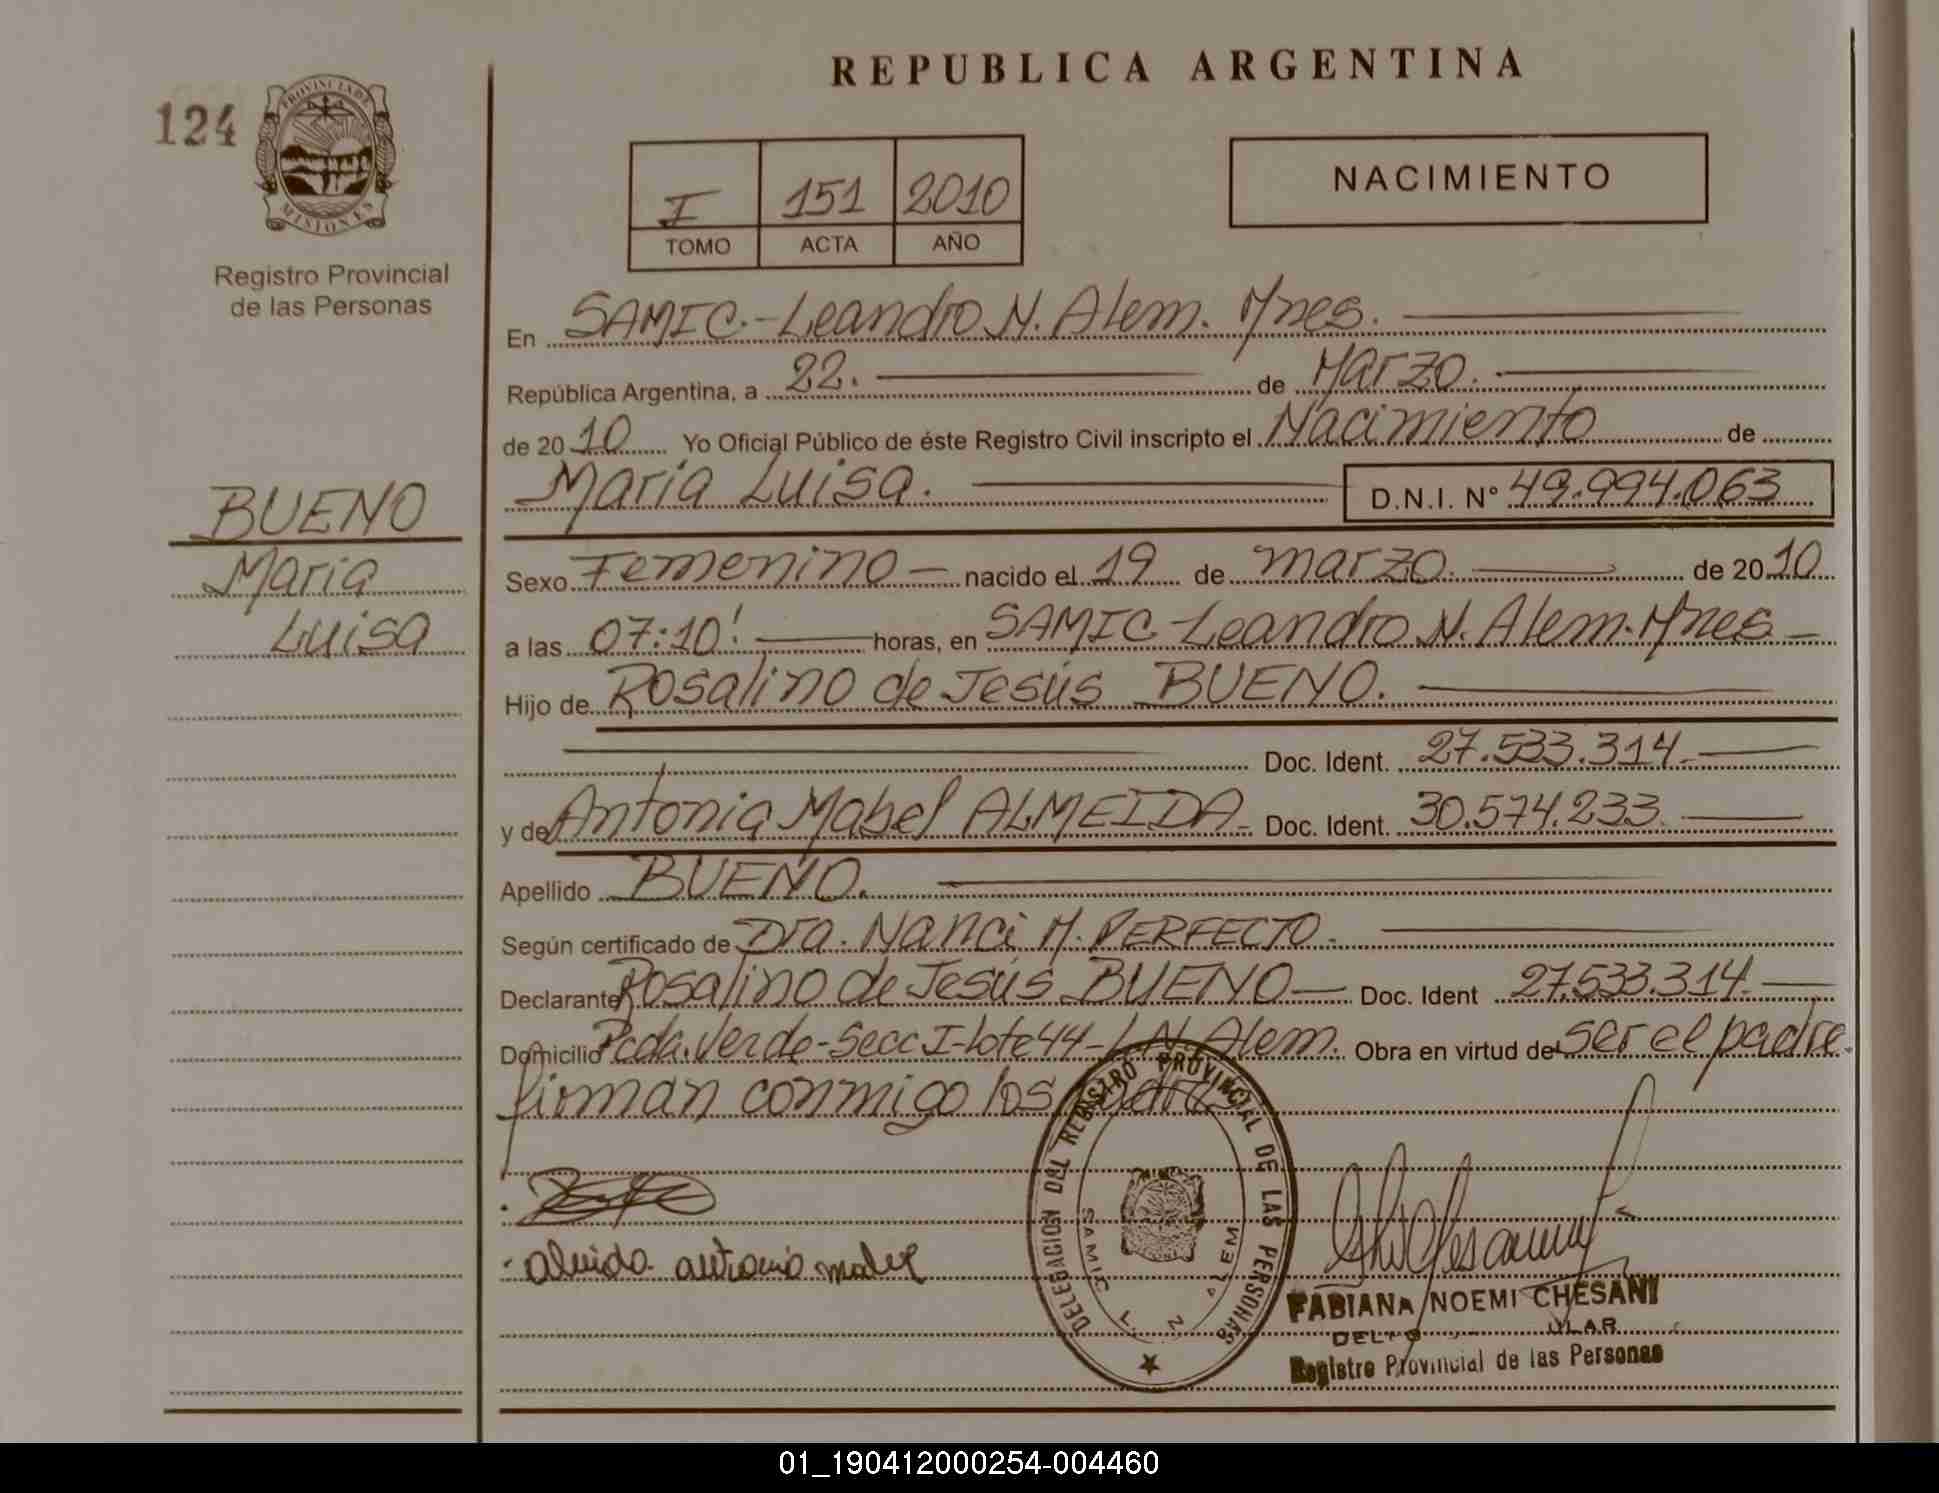 REPUBLICA ARGENTINA
124
PROVINCIA DE
MISIONES
Registro Provincial
de las Personas
I 151 2010
TOMO ACTA AÑO
NACIMIENTO
En SAMIC.-Leandro N. Alem. Mnes.
República Argentina, a 22. de Marzo.
de 2010 Yo Oficial Público de éste Registro Civil inscripto el Nacimiento de
María Luisa. D.N.I. N° 49.994.063
BUENO
María
Luisa
Sexo Femenino - nacido el 19 de marzo. de 2010
a las 07:10! horas, en SAMIC-Leandro N. Alem. Mnes -
Hijo de Rosalino de Jesús BUENO.
Doc. Ident. 27.533.314.-
y de Antonia Mabel ALMEIDA- Doc. Ident. 30.574.233.
Apellido BUENO.
Según certificado de Dra. Nanci M. PERFECTO.
Declarante Rosalino de Jesús BUENO- Doc. Ident 27.533.314.-
Domicilio Pcda. Verde-Secc I-lote 44-L.N. Alem. Obra en virtud de ser el padre.
firman conmigo los padres
almida antonia mabel
DELEGACION DEL REGISTRO PROVINCIAL DE LAS PERSONAS
SAMIC L. N. ALEM
FABIANA NOEMI CHESANI
Registro Provincial de las Personas
01_190412000254-004460